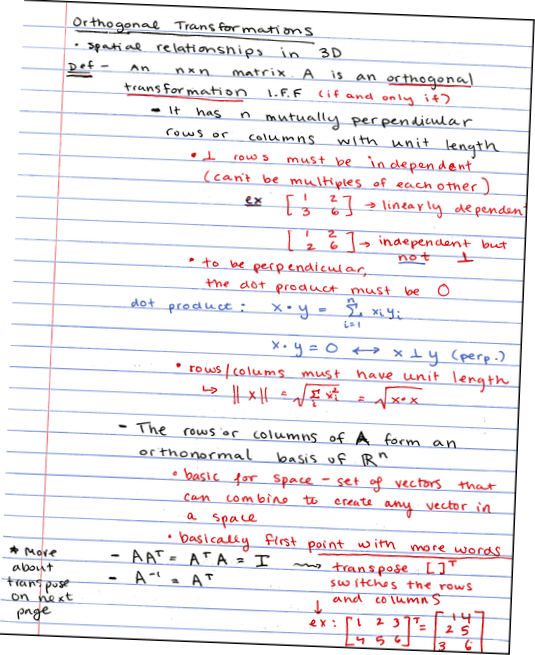 Orthogonal Transformations
• spatial relationships in 3D
Def - An nxn matrix A is an orthogonal
transformation I.F.F (if and only if)
- It has n mutually perpendicular
rows or columns with unit length
• ⊥ rows must be independent
(can't be multiples of each other)
ex [1 2 / 3 6] → linearly dependent
[1 2 / 2 6] → independent but
not ⊥
• to be perpendicular,
the dot product must be 0
dot product: x • y = Σ_{i=1}^{n} xᵢyᵢ
x • y = 0 ↔ x ⊥ y (perp.)
• rows/colums must have unit length
↳ ||x|| = √(Σᵢ xᵢ²) = √(x•x)
- The rows or columns of A form an
orthonormal basis of ℝⁿ
• basic for space - set of vectors that
can combine to create any vector in
a space
• basically first point with more words
- AAᵀ = AᵀA = I ⇝ transpose [ ]ᵀ
- A⁻¹ = Aᵀ switches the rows
and columns
↓
ex: [1 2 3 / 4 5 6]ᵀ = [1 4 / 2 5 / 3 6]
* More
about
transpose
on next
page